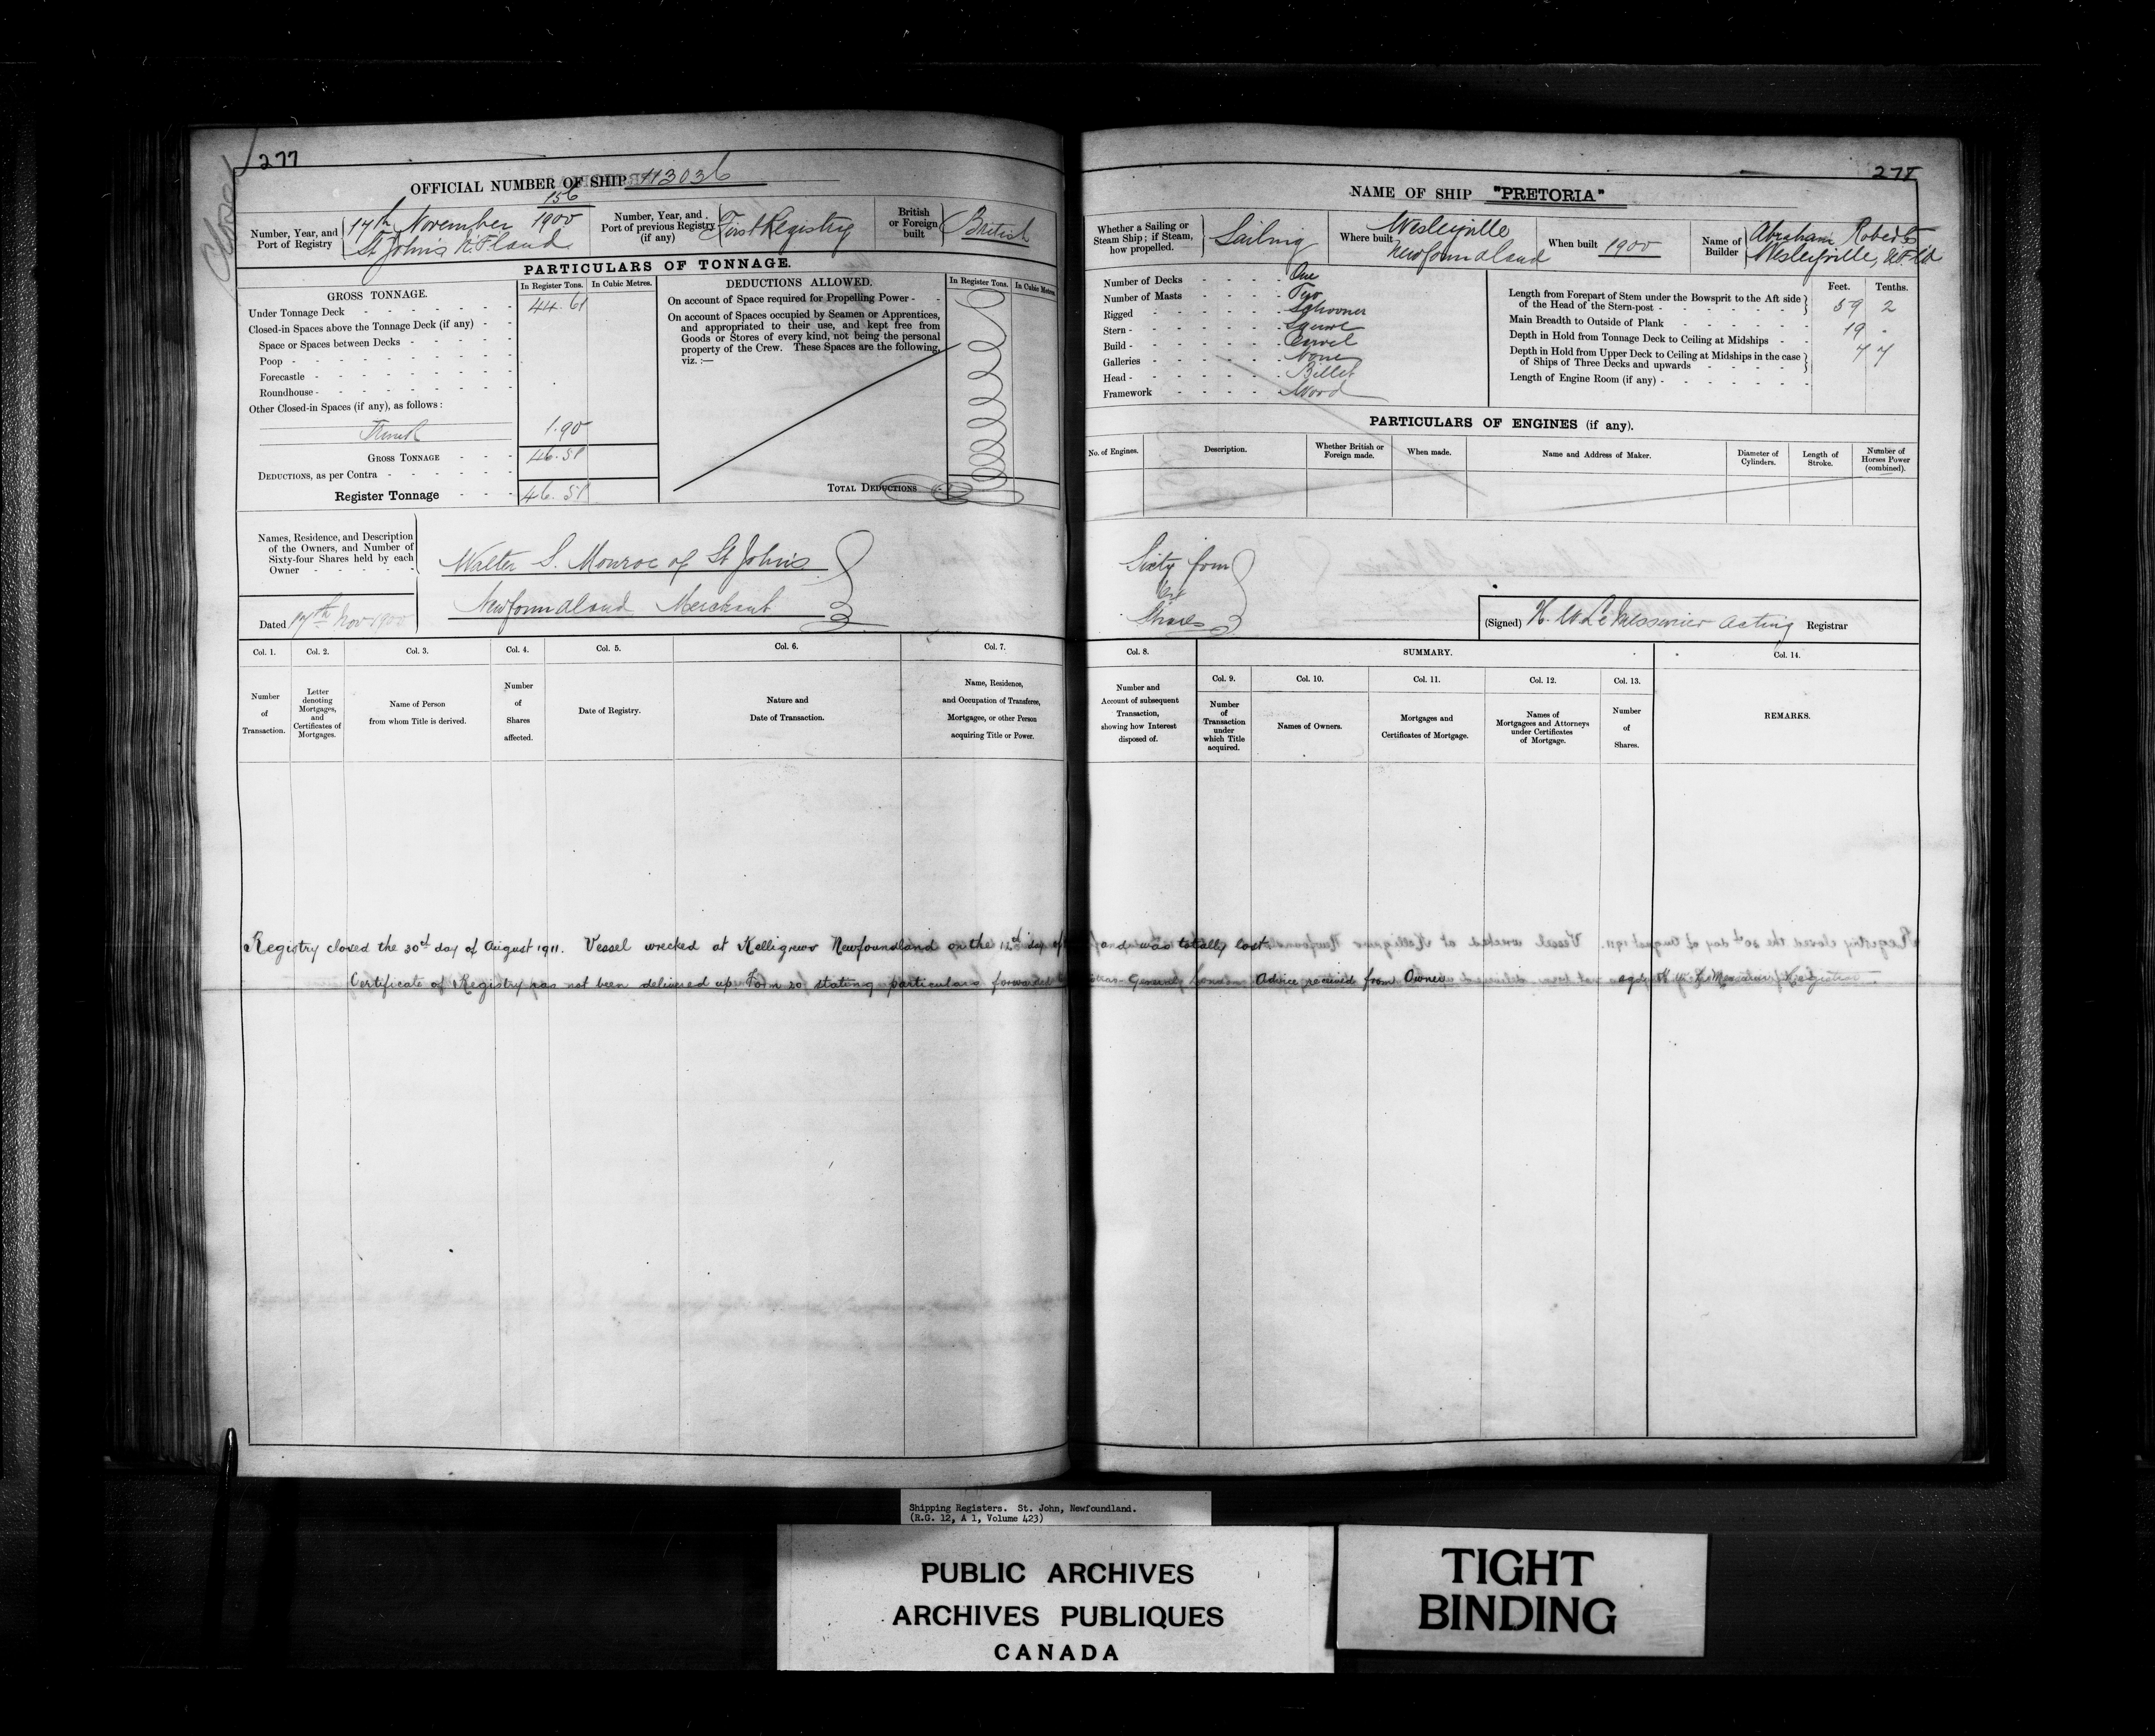 Closed
277
OFFICIAL NUMBER OF SHIP 113036
156
Number, Year, and Port of Registry
14th November 1900
St John's N.F.land
Number, Year, and Port of previous Registry (if any)
First Registry
British or Foreign built
British
PARTICULARS OF TONNAGE.
GROSS TONNAGE.
In Register Tons.
In Cubic Metres.
Under Tonnage Deck 44.61
Closed-in Spaces above the Tonnage Deck (if any)
Space or Spaces between Decks
Poop
Forecastle
Roundhouse
Other Closed-in Spaces (if any), as follows:
Trunk 1.90
GROSS TONNAGE 46.51
DEDUCTIONS, as per Contra
Register Tonnage 46.51
DEDUCTIONS ALLOWED.
In Register Tons.
In Cubic Metres.
On account of Space required for Propelling Power -
On account of Spaces occupied by Seamen or Apprentices,
and appropriated to their use, and kept free from
Goods or Stores of every kind, not being the personal
property of the Crew. These Spaces are the following,
viz.:—
TOTAL DEDUCTIONS
Names, Residence, and Description
of the Owners, and Number of
Sixty-four Shares held by each
Owner
Walter S. Monroe of St John's
Newfoundland Merchant
Dated 14th Nov 1900
Col. 1.
Number of Transaction.
Col. 2.
Letter denoting Mortgages, and Certificates of Mortgages.
Col. 3.
Name of Person from whom Title is derived.
Col. 4.
Number of Shares affected.
Col. 5.
Date of Registry.
Col. 6.
Nature and Date of Transaction.
Col. 7.
Name, Residence, and Occupation of Transferee, Mortgagee, or other Person acquiring Title or Power.
278
NAME OF SHIP "PRETORIA"
Whether a Sailing or Steam Ship; if Steam, how propelled.
Sailing
Where built
Wesleyville
Newfoundland
When built 1900
Name of Builder
Abraham Roberts
Wesleyville, N.F.ld
Number of Decks One
Number of Masts Two
Rigged Schooner
Stern Square
Build Carvel
Galleries None
Head Billet
Framework Wood
Feet. Tenths.
Length from Forepart of Stem under the Bowsprit to the Aft side
of the Head of the Stern-post 59 2
Main Breadth to Outside of Plank 19 -
Depth in Hold from Tonnage Deck to Ceiling at Midships 7 7
Depth in Hold from Upper Deck to Ceiling at Midships in the case
of Ships of Three Decks and upwards
Length of Engine Room (if any)
PARTICULARS OF ENGINES (if any).
No. of Engines.
Description.
Whether British or Foreign made.
When made.
Name and Address of Maker.
Diameter of Cylinders.
Length of Stroke.
Number of Horses Power (combined).
Sixty four
64
Shares
(Signed) H. W. LeMessurier Acting Registrar
Col. 8.
Number and Account of subsequent Transaction, showing how Interest disposed of.
SUMMARY.
Col. 9.
Number of Transaction under which Title acquired.
Col. 10.
Names of Owners.
Col. 11.
Mortgages and Certificates of Mortgage.
Col. 12.
Names of Mortgagees and Attorneys under Certificates of Mortgage.
Col. 13.
Number of Shares.
Col. 14.
REMARKS.
Registry closed the 30th day of August 1911. Vessel wrecked at Kelligrews Newfoundland on the 12th day of and was totally lost.
Certificate of Registry has not been delivered up Form 20 stating particulars forwarded General London Advice received from Owner sgd H. W. LeMessurier Registrar
Shipping Registers. St. John, Newfoundland.
(R.G. 12, A 1, Volume 423)
PUBLIC ARCHIVES
ARCHIVES PUBLIQUES
CANADA
TIGHT
BINDING